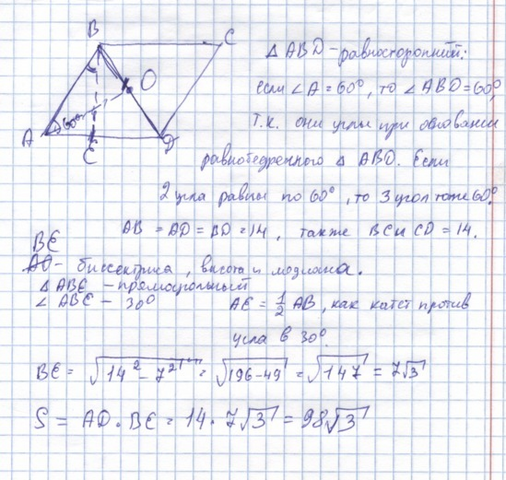 B
C
O
A
60°
E
D
△ ABD - равносторонний:
если ∠A = 60°, то ∠ABD = 60°,
т.к. они углы при основании
равнобедренного △ ABD. Если
2 угла равны по 60°, то 3 угол тоже 60°.
AB = AD = BD = 14, также BC и CD = 14.
BE
AO - биссектриса, высота и медиана.
△ ABE - прямоугольный
∠ ABE - 30° AE = 1/2 AB, как катет против
угла в 30°.
BE = √14² - 7² = √196 - 49 = √147 = 7√3
S = AD · BE = 14 · 7√3 = 98√3